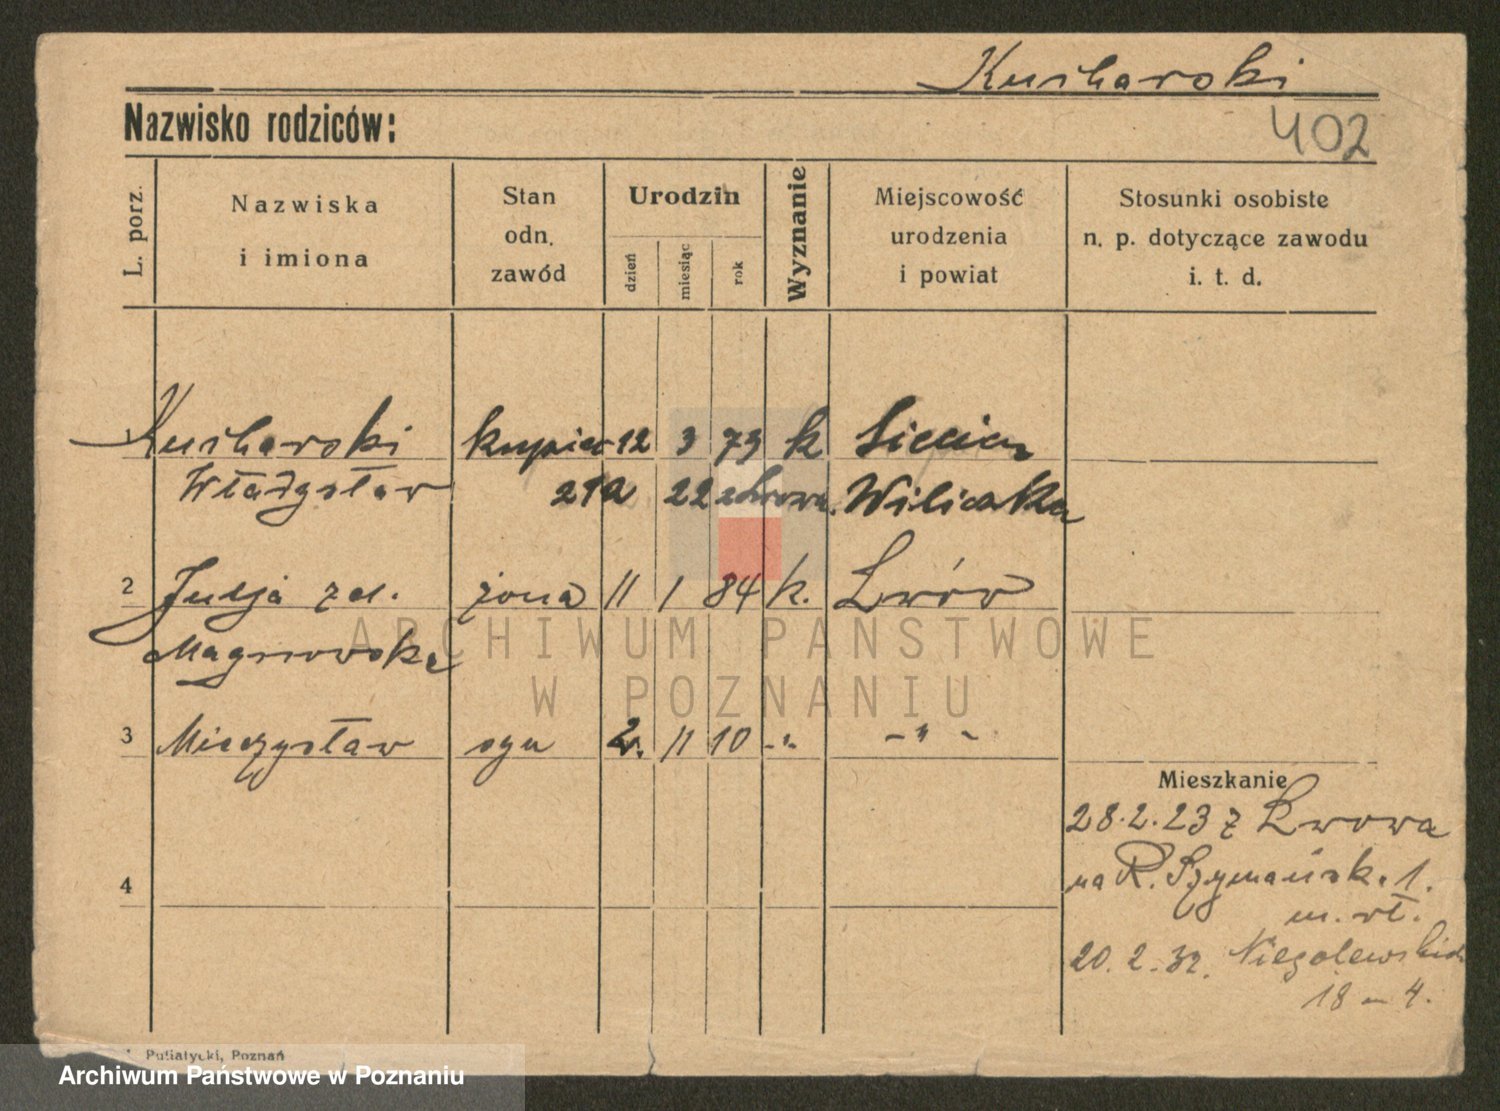 Kucharski
Nazwisko rodziców:
402
L. porz.
Nazwiska
i imiona
Stan
odn.
zawód
Urodzin
dzień
miesiąc
rok
Wyznanie
Miejscowość
urodzenia
i powiat
Stosunki osobiste
n. p. dotyczące zawodu
i. t. d.
1 Kucharski kupiec 12 3 73 k
Władysław 21a 22 z Lwowa. Wiliczka
2 Julja zd. żona 11 1 84 k. Lwów
Magnowska
3 Mieczysław syn 2. 11 10 -"- -"-
Mieszkanie
28.2.23 z Lwowa
na R. Szymańsk. 1.
m. wł.
20.2.32. Niegolewskich
18 m 4.
4
Putiatycki, Poznań
ARCHIWUM PAŃSTWOWE
W POZNANIU
Archiwum Państwowe w Poznaniu